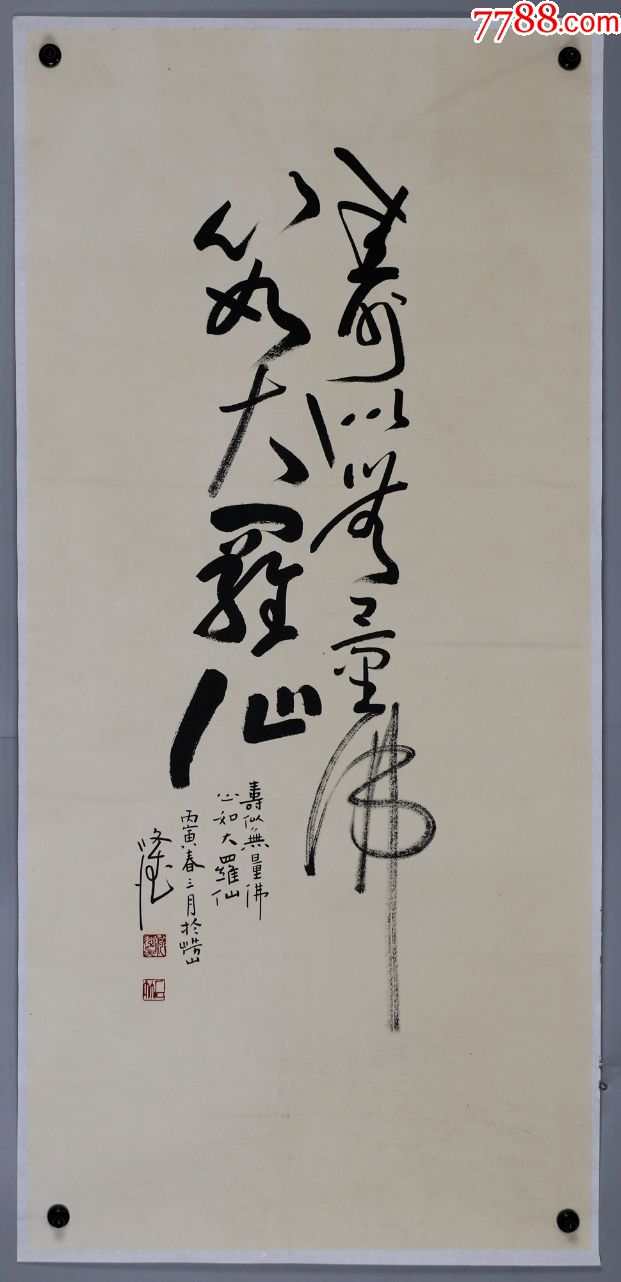 7788.com
壽似無量佛
心如大羅仙
壽似無量佛
心如大羅仙
丙寅春三月於嶗山